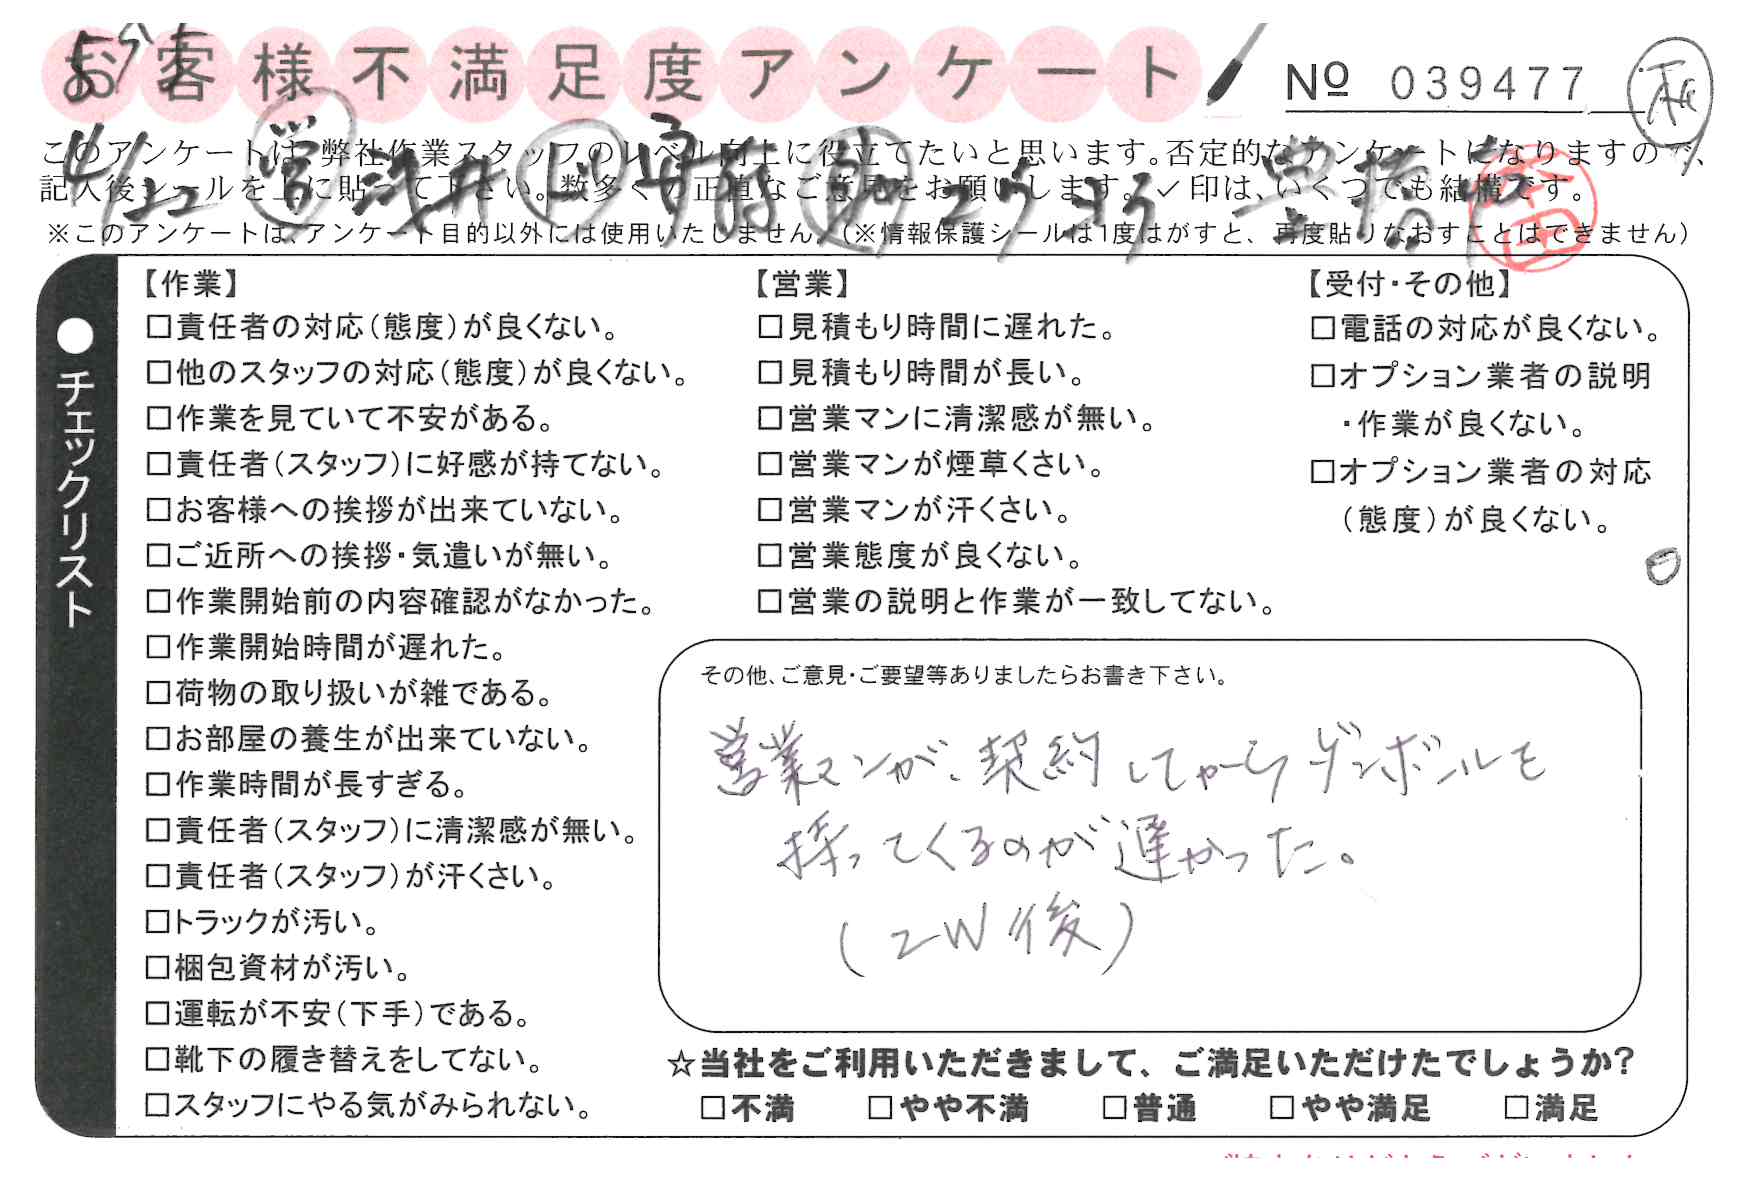 お客様不満足度アンケート
№ 039477
このアンケートは、弊社作業スタッフのレベル向上に役立てたいと思います。否定的なアンケートになりますので、
記入後シールを上に貼って下さい。数多くの正直なご意見をお願いします。✓印は、いくつでも結構です。
4/22 営 浅井
※このアンケートは、アンケート目的以外には使用いたしません。(※情報保護シールは1度はがすと、再度貼りなおすことはできません)
●チェックリスト
【作業】
□責任者の対応(態度)が良くない。
□他のスタッフの対応(態度)が良くない。
□作業を見ていて不安がある。
□責任者(スタッフ)に好感が持てない。
□お客様への挨拶が出来ていない。
□ご近所への挨拶・気遣いが無い。
□作業開始前の内容確認がなかった。
□作業開始時間が遅れた。
□荷物の取り扱いが雑である。
□お部屋の養生が出来ていない。
□作業時間が長すぎる。
□責任者(スタッフ)に清潔感が無い。
□責任者(スタッフ)が汗くさい。
□トラックが汚い。
□梱包資材が汚い。
□運転が不安(下手)である。
□靴下の履き替えをしてない。
□スタッフにやる気がみられない。
【営業】
□見積もり時間に遅れた。
□見積もり時間が長い。
□営業マンに清潔感が無い。
□営業マンが煙草くさい。
□営業マンが汗くさい。
□営業態度が良くない。
□営業の説明と作業が一致してない。
【受付・その他】
□電話の対応が良くない。
□オプション業者の説明
・作業が良くない。
□オプション業者の対応
(態度)が良くない。
その他、ご意見・ご要望等ありましたらお書き下さい。
営業マンが、契約してからダンボールを
持ってくるのが遅かった。
(2W後)
☆当社をご利用いただきまして、ご満足いただけたでしょうか?
□不満 □やや不満 □普通 □やや満足 □満足